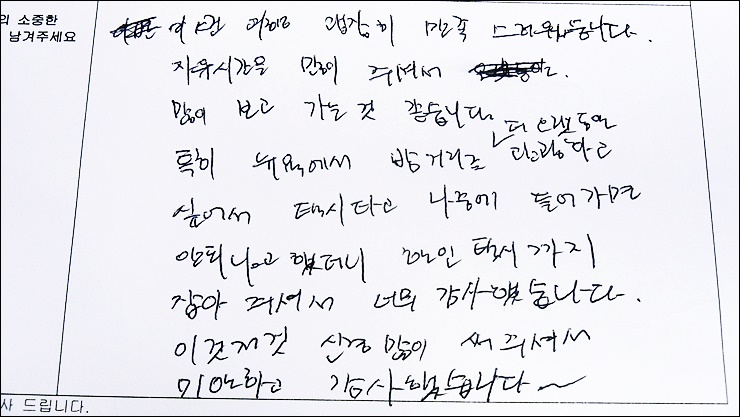 의 소중한
남겨주세요
이번 여행은 굉장히 만족스러웠습니다.
자유시간을 많이 주셔서
많이 보고 가는 것 같습니다.
더 오랫동안
특히 뉴욕에서 밤거리를 관광하고
싶어서 택시타고 나중에 들어가면
안되냐고 했더니 한인 택시까지
잡아 주셔서 너무 감사했습니다.
이것저것 신경 많이 써 주셔서
미안하고 감사했습니다~
사 드립니다.